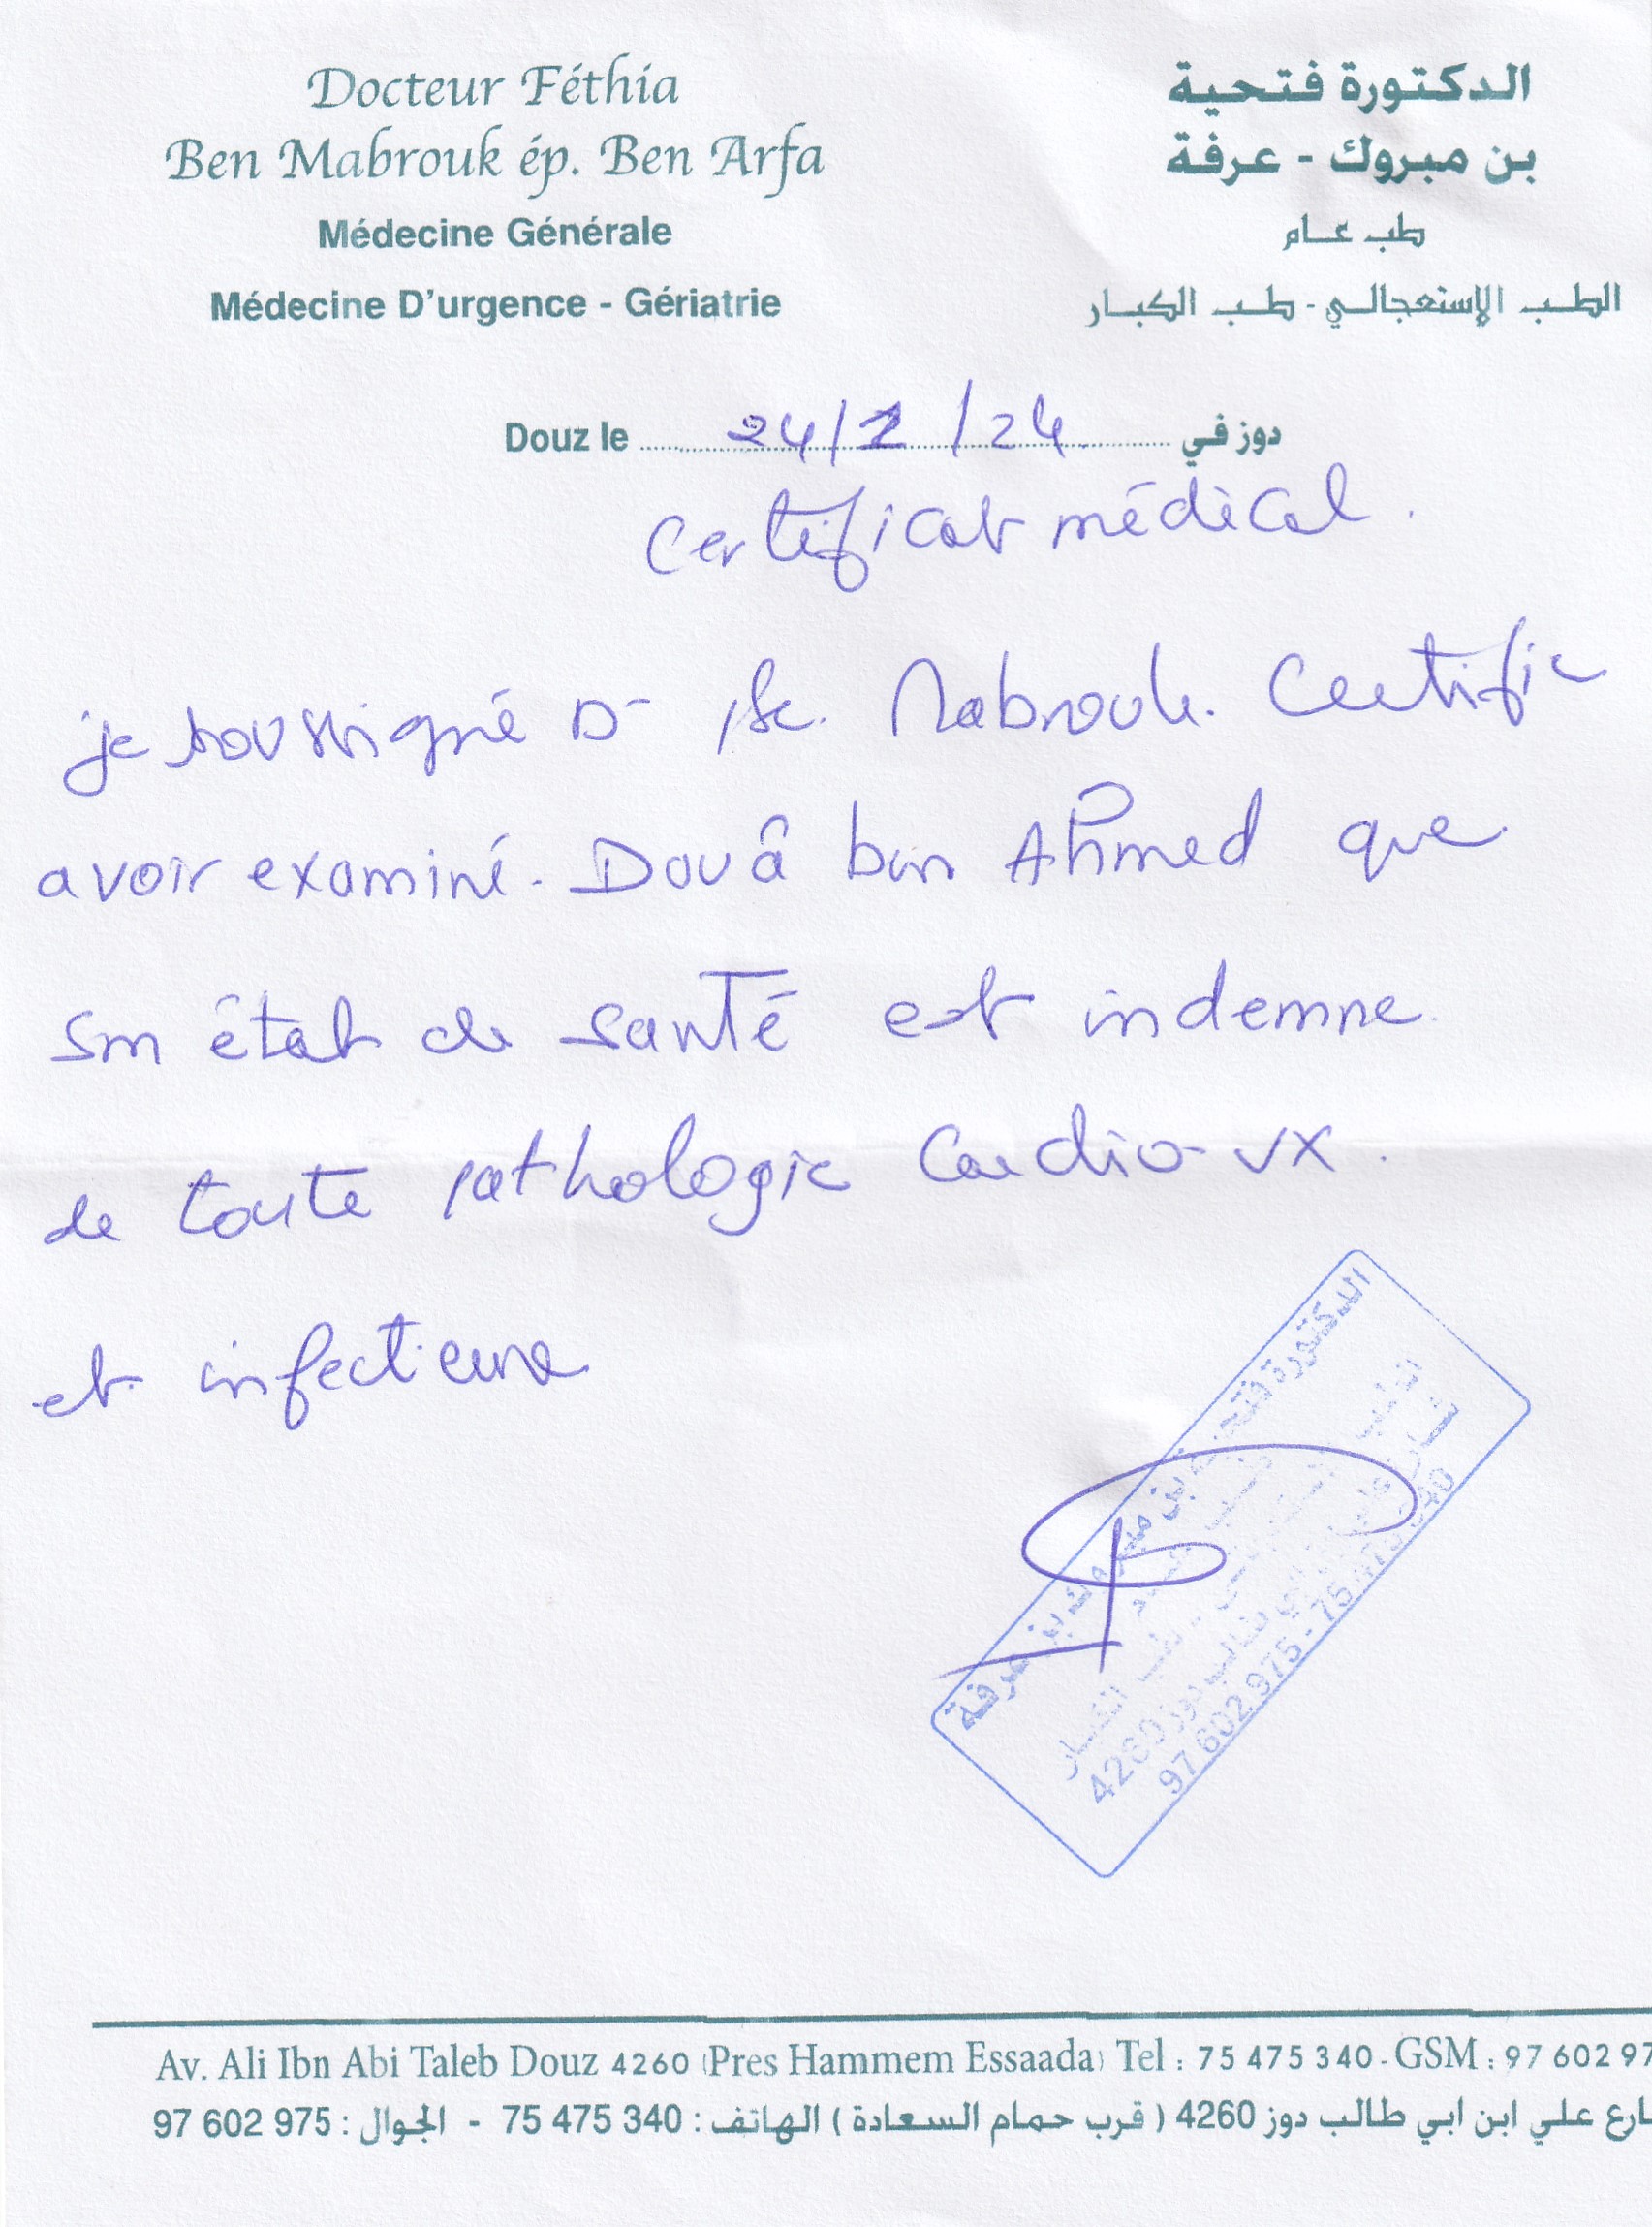 Docteur Féthia
Ben Mabrouk ép. Ben Arfa
Médecine Générale
Médecine D'urgence - Gériatrie
الدكتورة فتحية
بن مبروك - عرفة
طب عام
الطب الإستعجالي - طب الكبار
Douz le 24/1/24 دوز في
Certificat médical.
je soussigné Dr Be. Mabrouk. Certifie
avoir examiné. Douâ ben Ahmed que
son état de santé est indemne.
de toute pathologie Cardio-vx.
et infectieuse
الدكتورة فتحية بن مبروك بن عرفة
طب الكبار
أبي طالب دوز 4260
97 602 975 - 75 475 340
Av. Ali Ibn Abi Taleb Douz 4260 (Pres Hammem Essaada) Tel : 75 475 340 - GSM : 97 602 97
ارع علي ابن ابي طالب دوز 4260 ( قرب حمام السعادة ) الهاتف : 340 475 75 - الجوال : 975 602 97